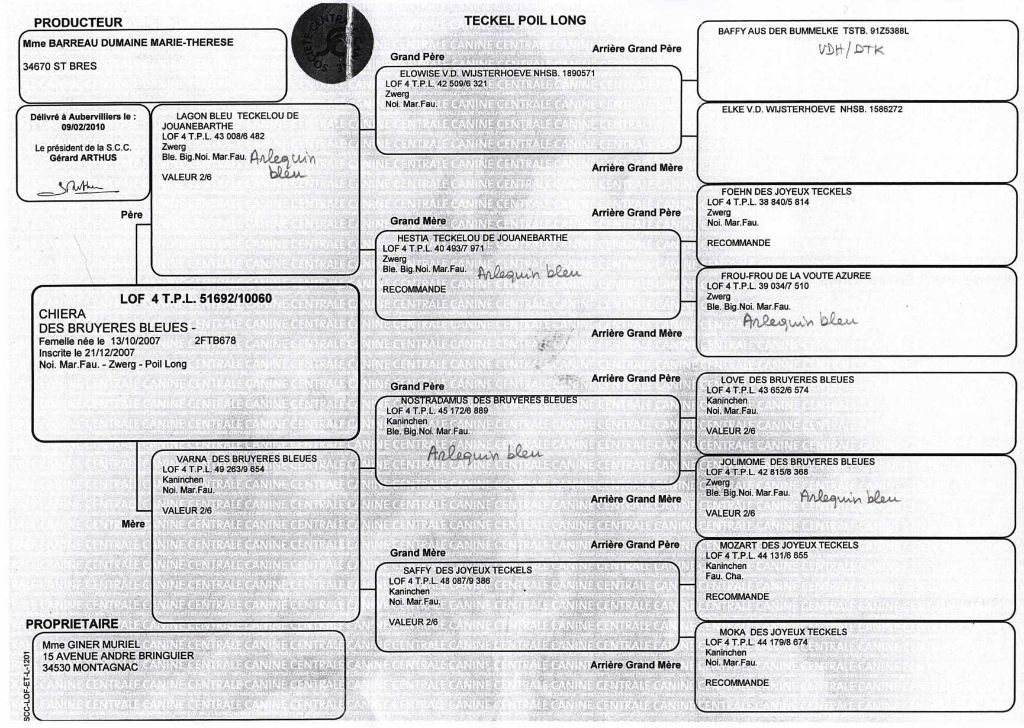 PRODUCTEUR
Mme BARREAU DUMAINE MARIE-THERESE
34670 ST BRES
TECKEL POIL LONG
Délivré à Aubervilliers le :
09/02/2010
Le président de la S.C.C.
Gérard ARTHUS
Père
LAGON BLEU TECKELOU DE
JOUANEBARTHE
LOF 4 T.P.L. 43 008/6 482
Zwerg
Ble. Big.Noi. Mar.Fau. Arlequin
bleu
VALEUR 2/6
Grand Père
ELOWISE V.D. WIJSTERHOEVE NHSB. 1890571
LOF 4 T.P.L. 42 509/6 321
Zwerg
Noi. Mar.Fau.
Arrière Grand Père
BAFFY AUS DER BUMMELKE TSTB. 91Z5388L
VDH/DTK
ELKE V.D. WIJSTERHOEVE NHSB. 1586272
Arrière Grand Mère
Grand Mère
HESTIA TECKELOU DE JOUANEBARTHE
LOF 4 T.P.L. 40 493/7 971
Zwerg
Ble. Big.Noi. Mar.Fau. Arlequin bleu
RECOMMANDE
Arrière Grand Père
FOEHN DES JOYEUX TECKELS
LOF 4 T.P.L. 38 840/5 814
Zwerg
Noi. Mar.Fau.
RECOMMANDE
FROU-FROU DE LA VOUTE AZUREE
LOF 4 T.P.L. 39 034/7 510
Zwerg
Ble. Big.Noi. Mar.Fau.
Arlequin bleu
Arrière Grand Mère
LOF 4 T.P.L. 51692/10060
CHIERA
DES BRUYERES BLEUES -
Femelle née le 13/10/2007 2FTB678
Inscrite le 21/12/2007
Noi. Mar.Fau. - Zwerg - Poil Long
Mère
VARNA DES BRUYERES BLEUES
LOF 4 T.P.L. 49 263/9 654
Kaninchen
Noi. Mar.Fau.
VALEUR 2/6
Grand Père
NOSTRADAMUS DES BRUYERES BLEUES
LOF 4 T.P.L. 45 172/6 889
Kaninchen
Ble. Big.Noi. Mar.Fau.
Arlequin bleu
Arrière Grand Père
LOVE DES BRUYERES BLEUES
LOF 4 T.P.L. 43 652/6 574
Kaninchen
Noi. Mar.Fau.
VALEUR 2/6
JOLIMOME DES BRUYERES BLEUES
LOF 4 T.P.L. 42 815/8 368
Zwerg
Ble. Big.Noi. Mar.Fau. Arlequin bleu
VALEUR 2/6
Arrière Grand Mère
Grand Mère
SAFFY DES JOYEUX TECKELS
LOF 4 T.P.L. 48 087/9 386
Kaninchen
Noi. Mar.Fau.
VALEUR 2/6
Arrière Grand Père
MOZART DES JOYEUX TECKELS
LOF 4 T.P.L. 44 131/6 655
Kaninchen
Fau. Cha.
RECOMMANDE
MOKA DES JOYEUX TECKELS
LOF 4 T.P.L. 44 179/8 674
Kaninchen
Noi. Mar.Fau.
RECOMMANDE
Arrière Grand Mère
PROPRIETAIRE
Mme GINER MURIEL
15 AVENUE ANDRE BRINGUIER
34530 MONTAGNAC
SCC-LOF-ET-L-1201